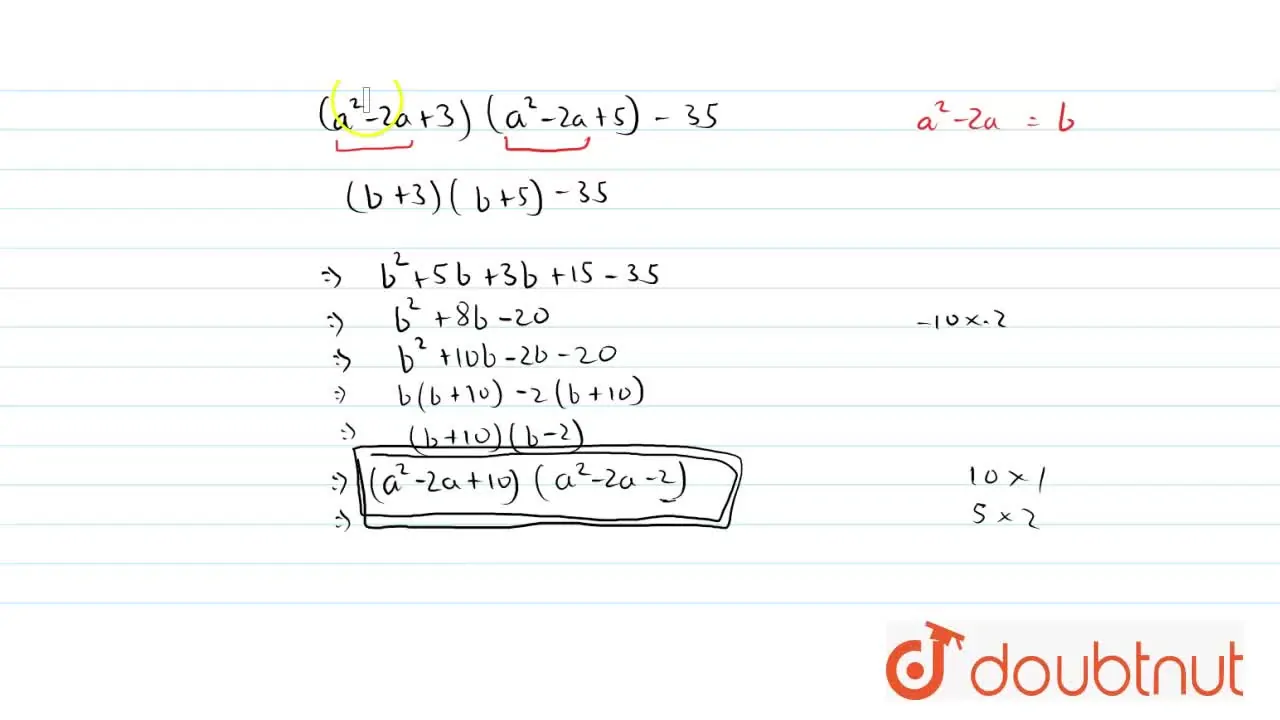 (a²-2a+3) (a²-2a+5) - 35 a²-2a = b
(b+3)(b+5) - 35
⇒ b²+5b+3b+15-35
⇒ b²+8b-20 -10×-2
⇒ b²+10b-2b-20
⇒ b(b+10)-2(b+10)
⇒ (b+10)(b-2)
⇒ (a²-2a+10) (a²-2a-2) 10×1
⇒ 5×2
doubtnut